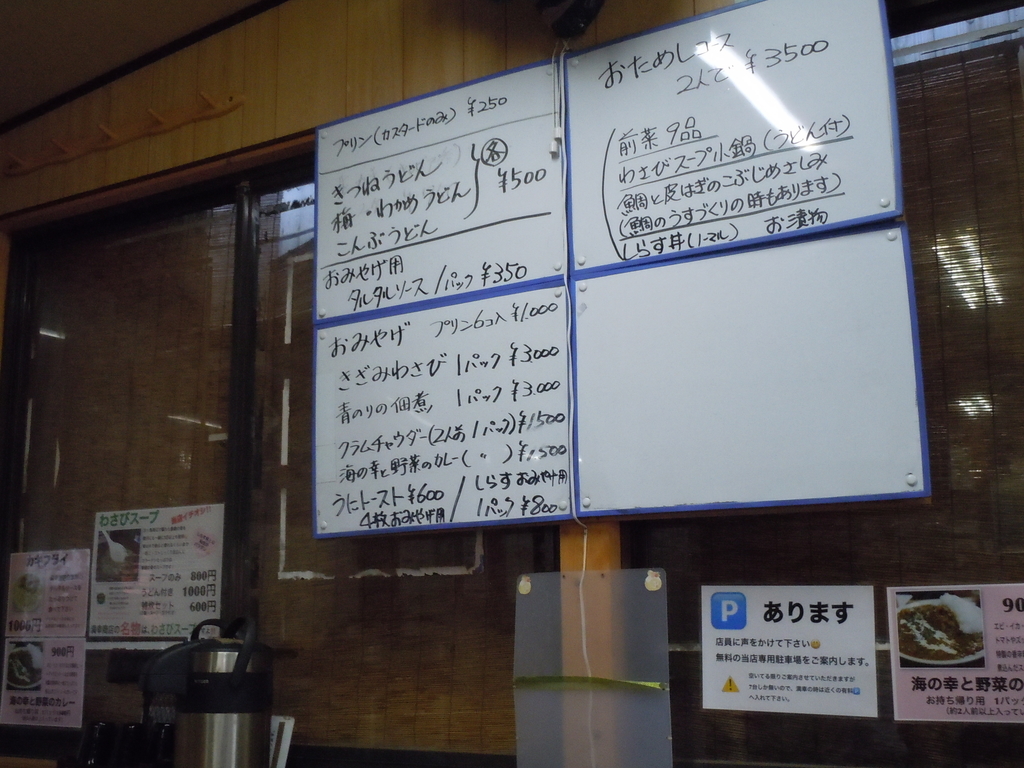 プリン(カスタードのみ) ¥250
きつねうどん
梅・わかめうどん
こんぶうどん
各 ¥500
おみやげ用
タルタルソース 1パック ¥350
おみやげ プリン6コ入 ¥1.000
きざみわさび 1パック ¥3000
青のりの佃煮 1パック ¥3.000
クラムチャウダー(2人前 1パック) ¥1500
海の幸と野菜のカレー( 〃 ) ¥1.500
うにトースト¥600
4枚おみやげ用
しらすおみやげ用
1パック ¥800
おためしコース
2人で ¥3500
前菜 9品
わさびスープ小鍋(うどん付)
鯛と皮はぎのこぶじめさしみ
(鯛のうすづくりの時もあります)
しらす丼(ノーマル) お漬物
わさびスープ
スープのみ 800円
うどん付き 1000円
特炊セット 600円
名物は、わさびスープ
カキフライ
1000円
900円
海の幸と野菜のカレー
P あります
店員に声をかけて下さい
無料の当店専用駐車場をご案内します。
空いてる限りご案内させていただきますが
7台しか無いので、満車の時は近くの有料P
へ入れて下さい。
90
エビ・イカ
海の幸と野菜の
お持ち帰り用 1パッ
(約2人前以上入ってい